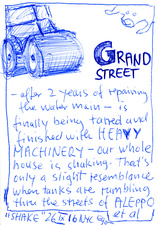 GRAND
STREET
- after 2 years of repairing
the water main - is
finally being tarred and
finished with HEAVY
MACHINERY - our whole
house is shaking. That's
only a slight resemblance
when tanks are rumbling
thru the streets of ALEPPO
et al
"SHAKE" 26 IX 16 NYC